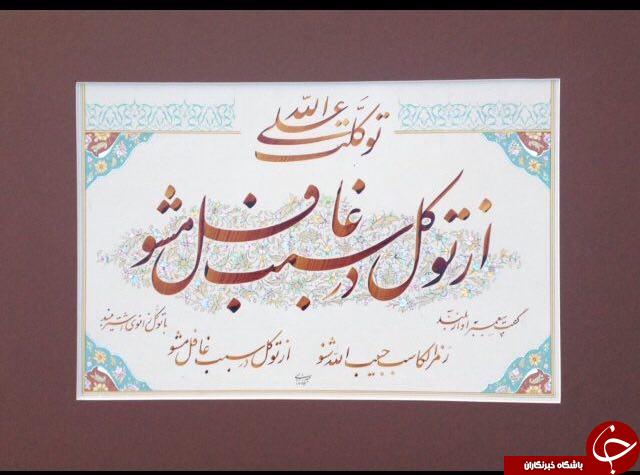 توکّلت علی الله
از توکل در سبب غافل مشو
گفت پیغمبر به آواز بلند
با توکّل زانوی اشتر ببند
رمز الکاسب حبیب الله شنو
از توکل در سبب غافل مشو
باشگاه خبرنگاران